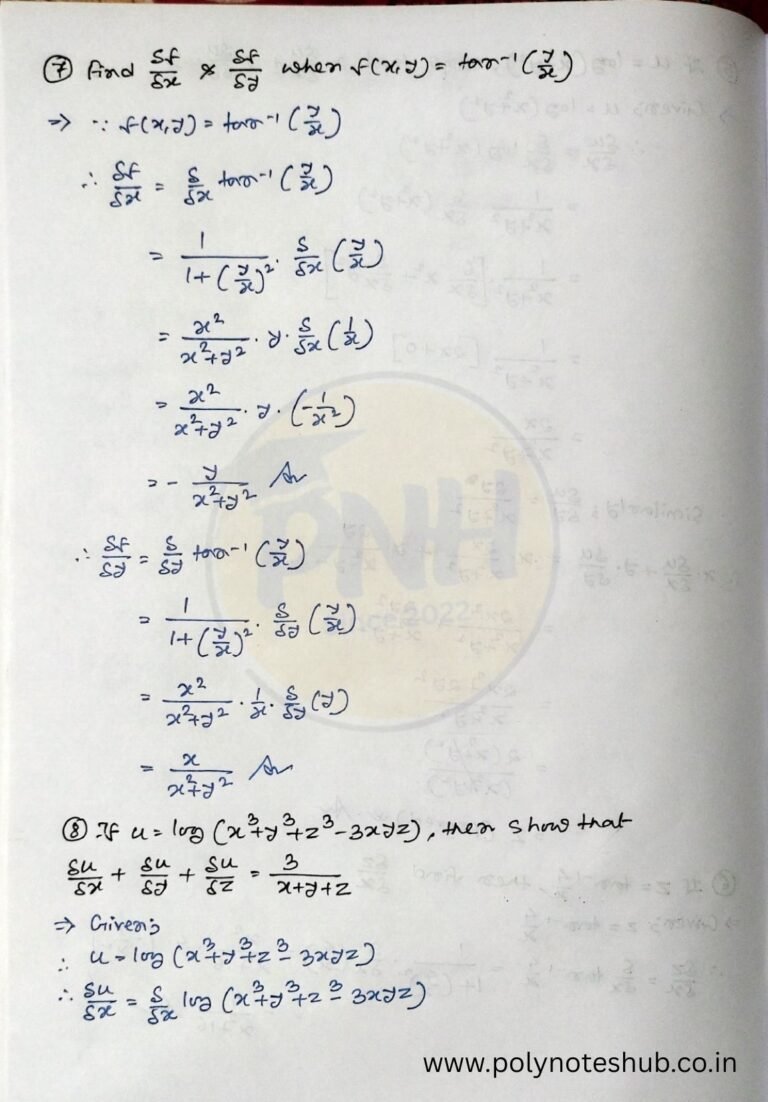 ⑦ Find δf/δx & δf/δy when f(x,y) = tan⁻¹(y/x)
⇒ ∵ f(x,y) = tan⁻¹(y/x)
∴ δf/δx = δ/δx tan⁻¹(y/x)
= 1/(1+(y/x)²) · δ/δx (y/x)
= x²/(x²+y²) · y · δ/δx (1/x)
= x²/(x²+y²) · y · (-1/x²)
= - y/(x²+y²) An
∴ δf/δy = δ/δy tan⁻¹(y/x)
= 1/(1+(y/x)²) · δ/δy (y/x)
= x²/(x²+y²) · 1/x · δ/δy (y)
= x/(x²+y²) An
⑧ If u = log (x³+y³+z³-3xyz), then show that
δu/δx + δu/δy + δu/δz = 3/(x+y+z)
⇒ Given:
∴ u = log (x³+y³+z³-3xyz)
∴ δu/δx = δ/δx log (x³+y³+z³-3xyz)
PNH
2022
www.polynoteshub.co.in